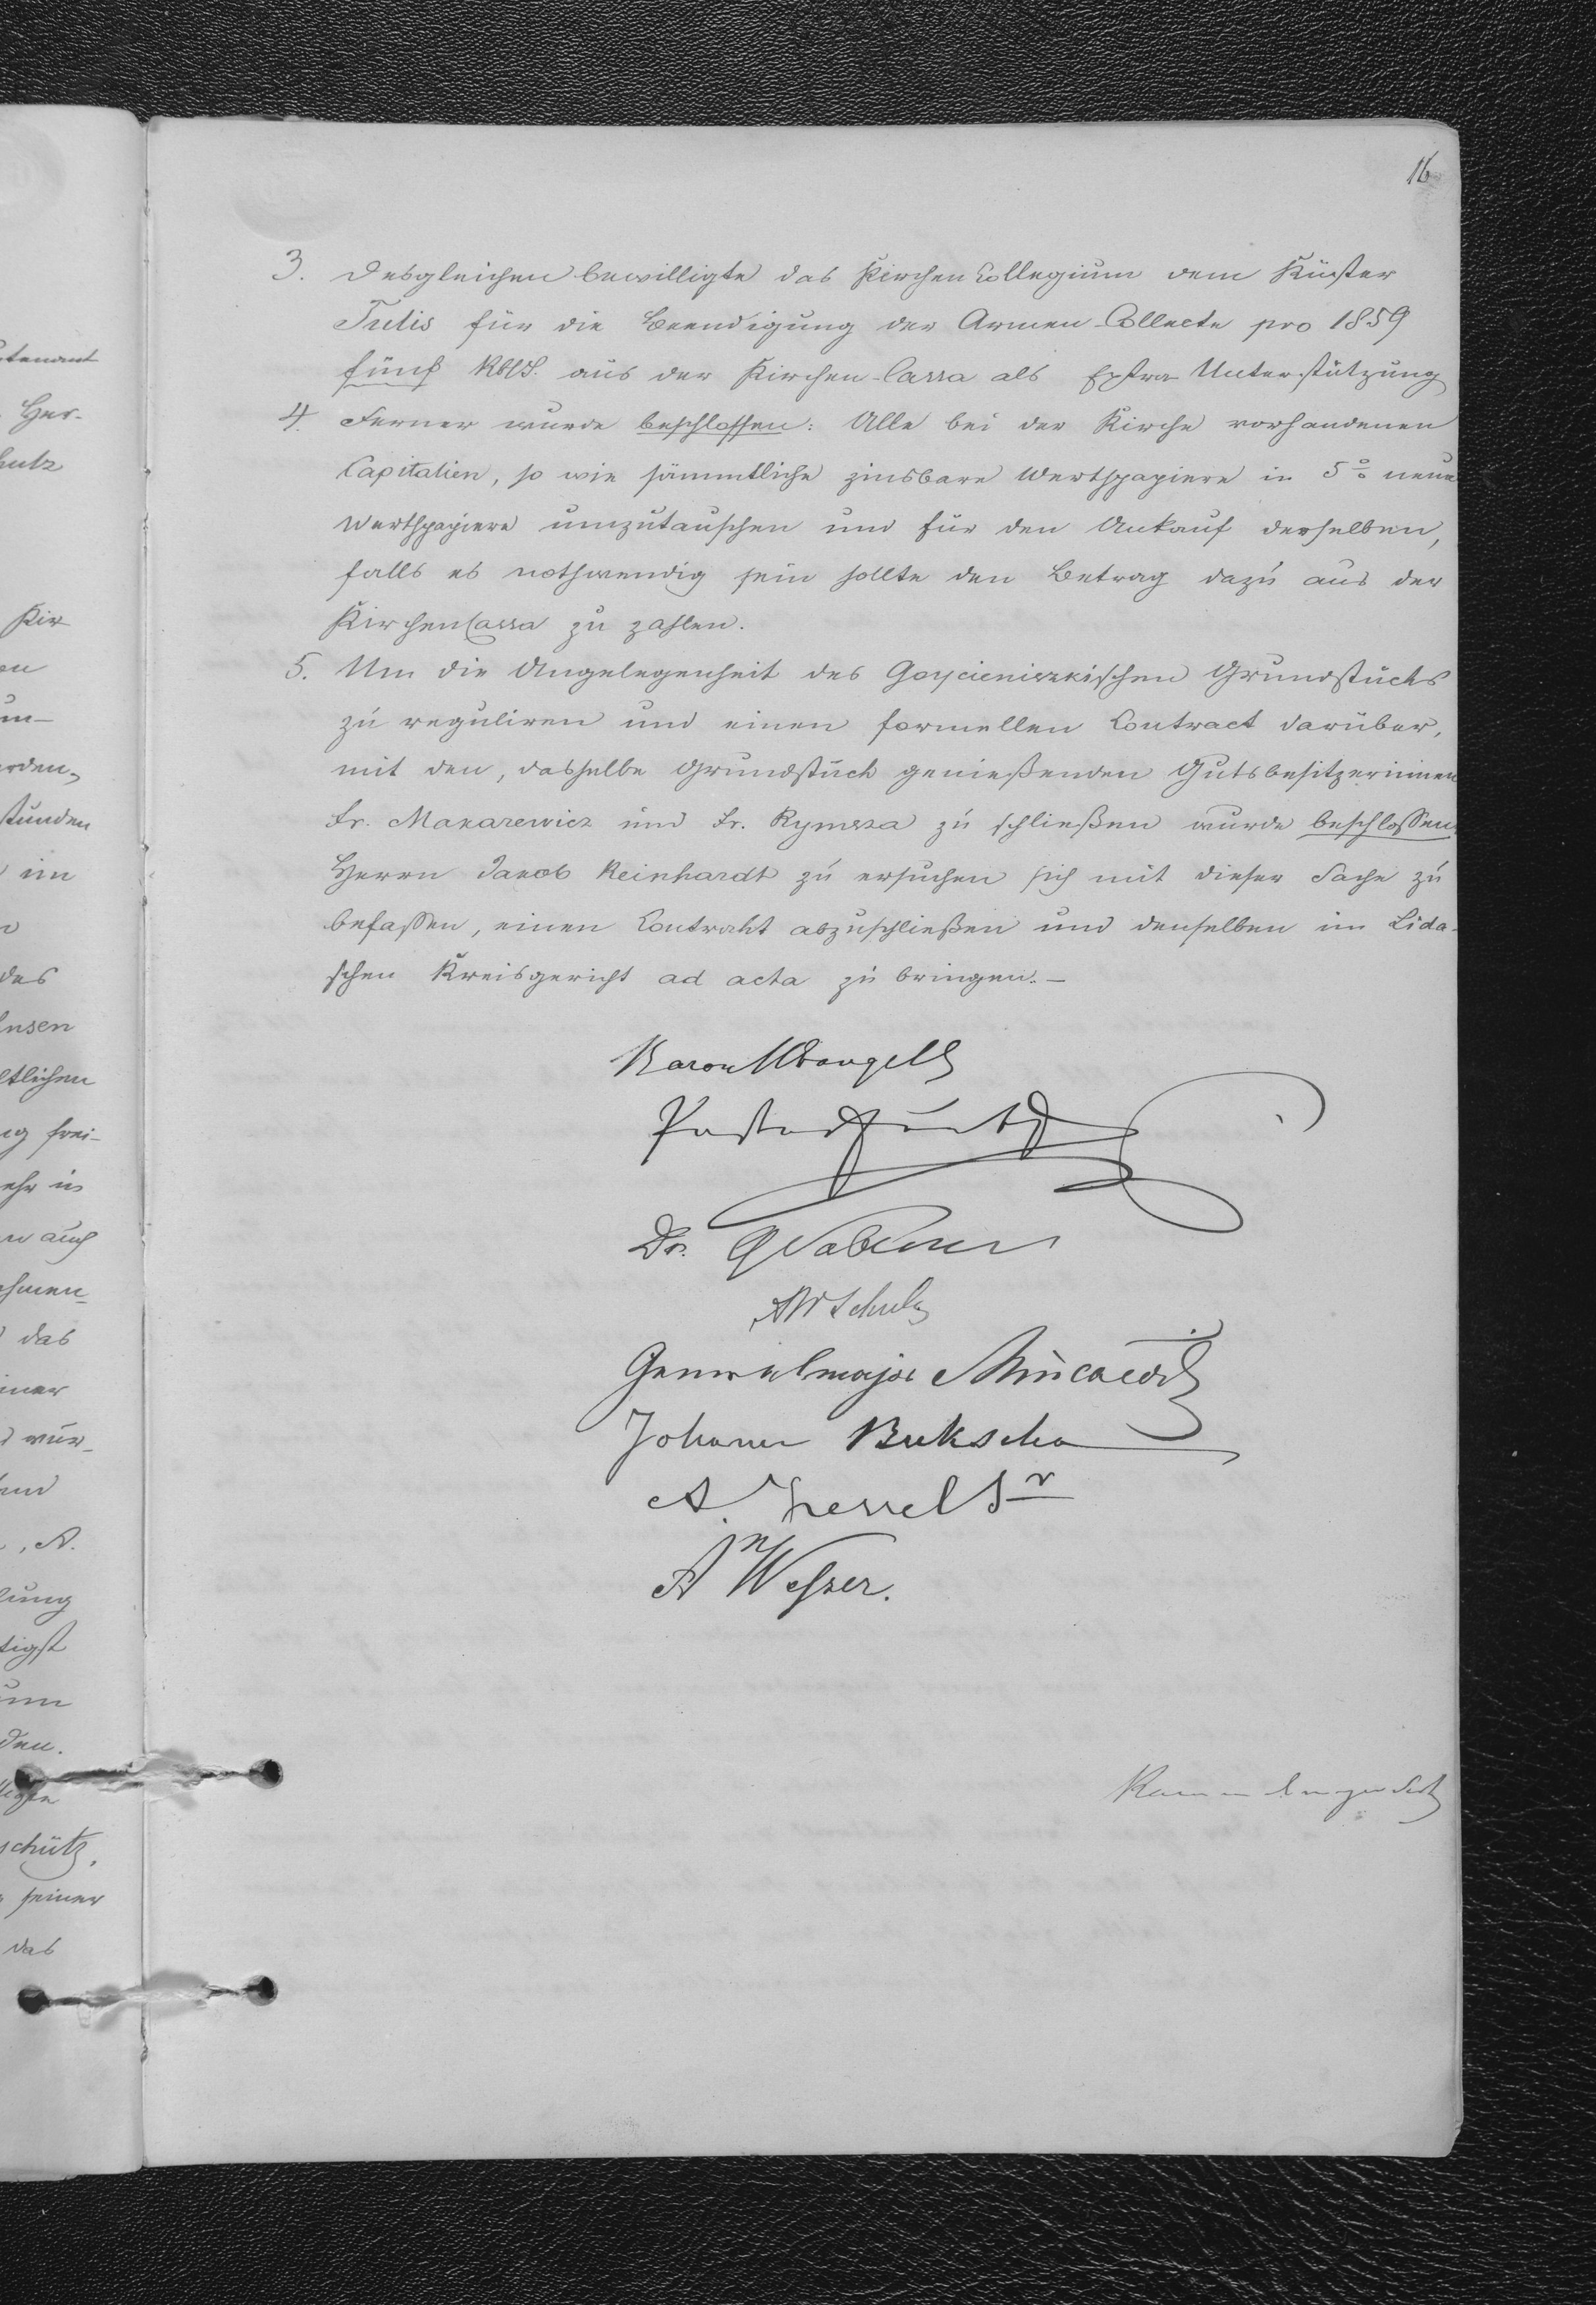 16
3. Desgleichen bewilligte das Kirchen Collegium dem Küster
Tutis für die Beendigung der Armen-Collecte pro 1859
fünf RblS. aus der Kirchen-Cassa als Extra Unterstützung
4. Ferner wurde beschlossen: Alle bei der Kirche vorhandenen
Capitalien, so wie sämmtliche zinsbare Werthpapiere in 5% neue
Werthpapiere umzutauschen und für den Ankauf derselben,
falls es nothwendig sein sollte den Betrag dazu aus der
KirchenCassa zu zahlen.
5. Um die Angelegenheit des Goycieniszkischen Grundstücks
zu reguliren und einen formellen Contract darüber,
mit den, dasselbe Grundstück genießenden Gutsbesitzerinnen
Fr. Makarewicz und Fr. Rymsza zu schließen wurde beschlossen
Herrn Jacob Reinhardt zu ersuchen sich mit dieser Sache zu
befassen, einen Contrakt abzuschließen und denselben im Lida-
schen Kreisgericht ad acta zu bringen. –
Baron Wrangell
Pastor
Dr.
AW Schulz
Generalmajor
Johann Bukscha
A.
A